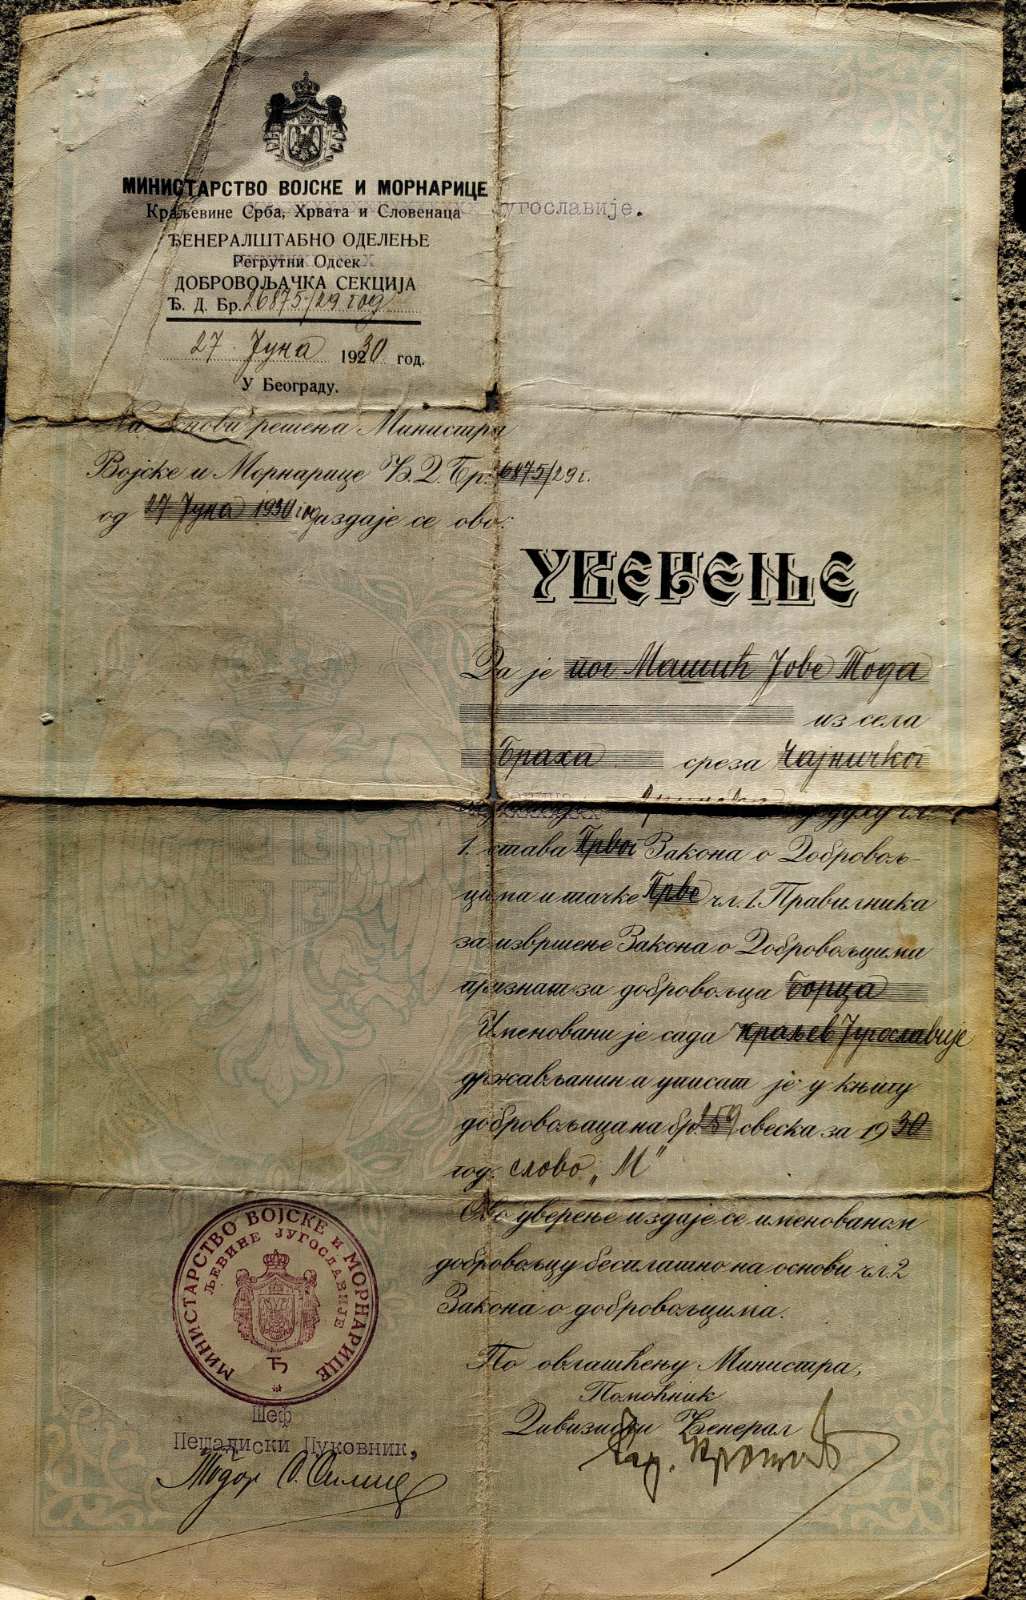 МИНИСТАРСТВО ВОЈСКЕ И МОРНАРИЦЕ
Краљевине Срба, Хрвата и Словенаца угославије.
ЂЕНЕРАЛШТАБНО ОДЕЛЕЊЕ
Регрутни Одсек
ДОБРОВОЉАЧКА СЕКЦИЈА
Ђ. Д. Бр. 26875/29 год
27 Јуна 1930 год.
У Београду.
На основи решења Министра
Војске и Морнарице Ђ. Д. Бр. 26875/29 г.
од 27 Јуна 1930 год издаје се ово:
УВЕРЕЊЕ
Да је пог Машић Јове Тода
из села
Браха среза Чајничког
у духу чл.
1. става Првог Закона о Добровољ-
цима и тачке Прве чл. 1. Правилника
за извршење Закона о Добровољцима
признат за добровољца борца
Именовани је сада Краљев Југославије
држављанин и уписат је у књигу
добровољаца на бр. 259 свеска за 1930
год. слово „М"
Ово уверење издаје се именованом
добровољцу бесплатно на основи чл. 2
Закона о добровољцима.
По овлашћењу Министра,
Помоћник
Дивизиски Ђенерал
МИНИСТАРСТВО ВОЈСКЕ И МОРНАРИЦЕ
ЉЕВИНЕ ЈУГОСЛАВИЈЕ
Ђ
Шеф
Пешадиски Пуковник,
Тодор